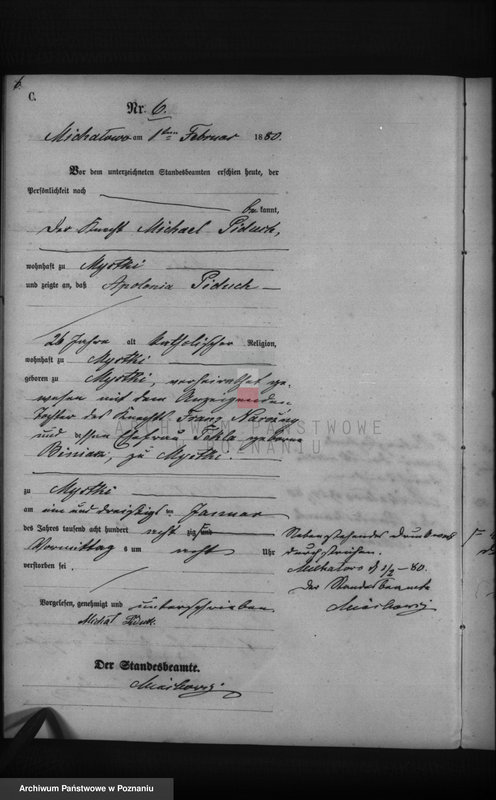 6.
C.
Nr. 6.
Michałowo am 1ten Februar 1880.
Vor dem unterzeichneten Standesbeamten erschien heute, der
Persönlichkeit nach
be kannt,
der Knecht Michael Piduch,
wohnhaft zu Mystki
und zeigte an, daß Apolonia Piduch
26 Jahre alt katholischer Religion,
wohnhaft zu Mystki
geboren zu Mystki, verheirathet ge-
wesen mit dem Anzeigenden
Tochter des Knechts Franz
und dessen Ehefrau Tekla geborne
zu Mystki.
zu Mystki
am ein und dreißigsten Januar
des Jahres tausend acht hundert
Vormittag s um acht Uhr
verstorben sei.
Vorgelesen, genehmigt und unterschrieben
Michał
Der Standesbeamte.
Nebenstehendes
durchstrichen.
Michałowo d 1/2 – 80.
Der Standesbeamte
ARCHIWUM PAŃSTWOWE
W POZNANIU
Archiwum Państwowe w Poznaniu